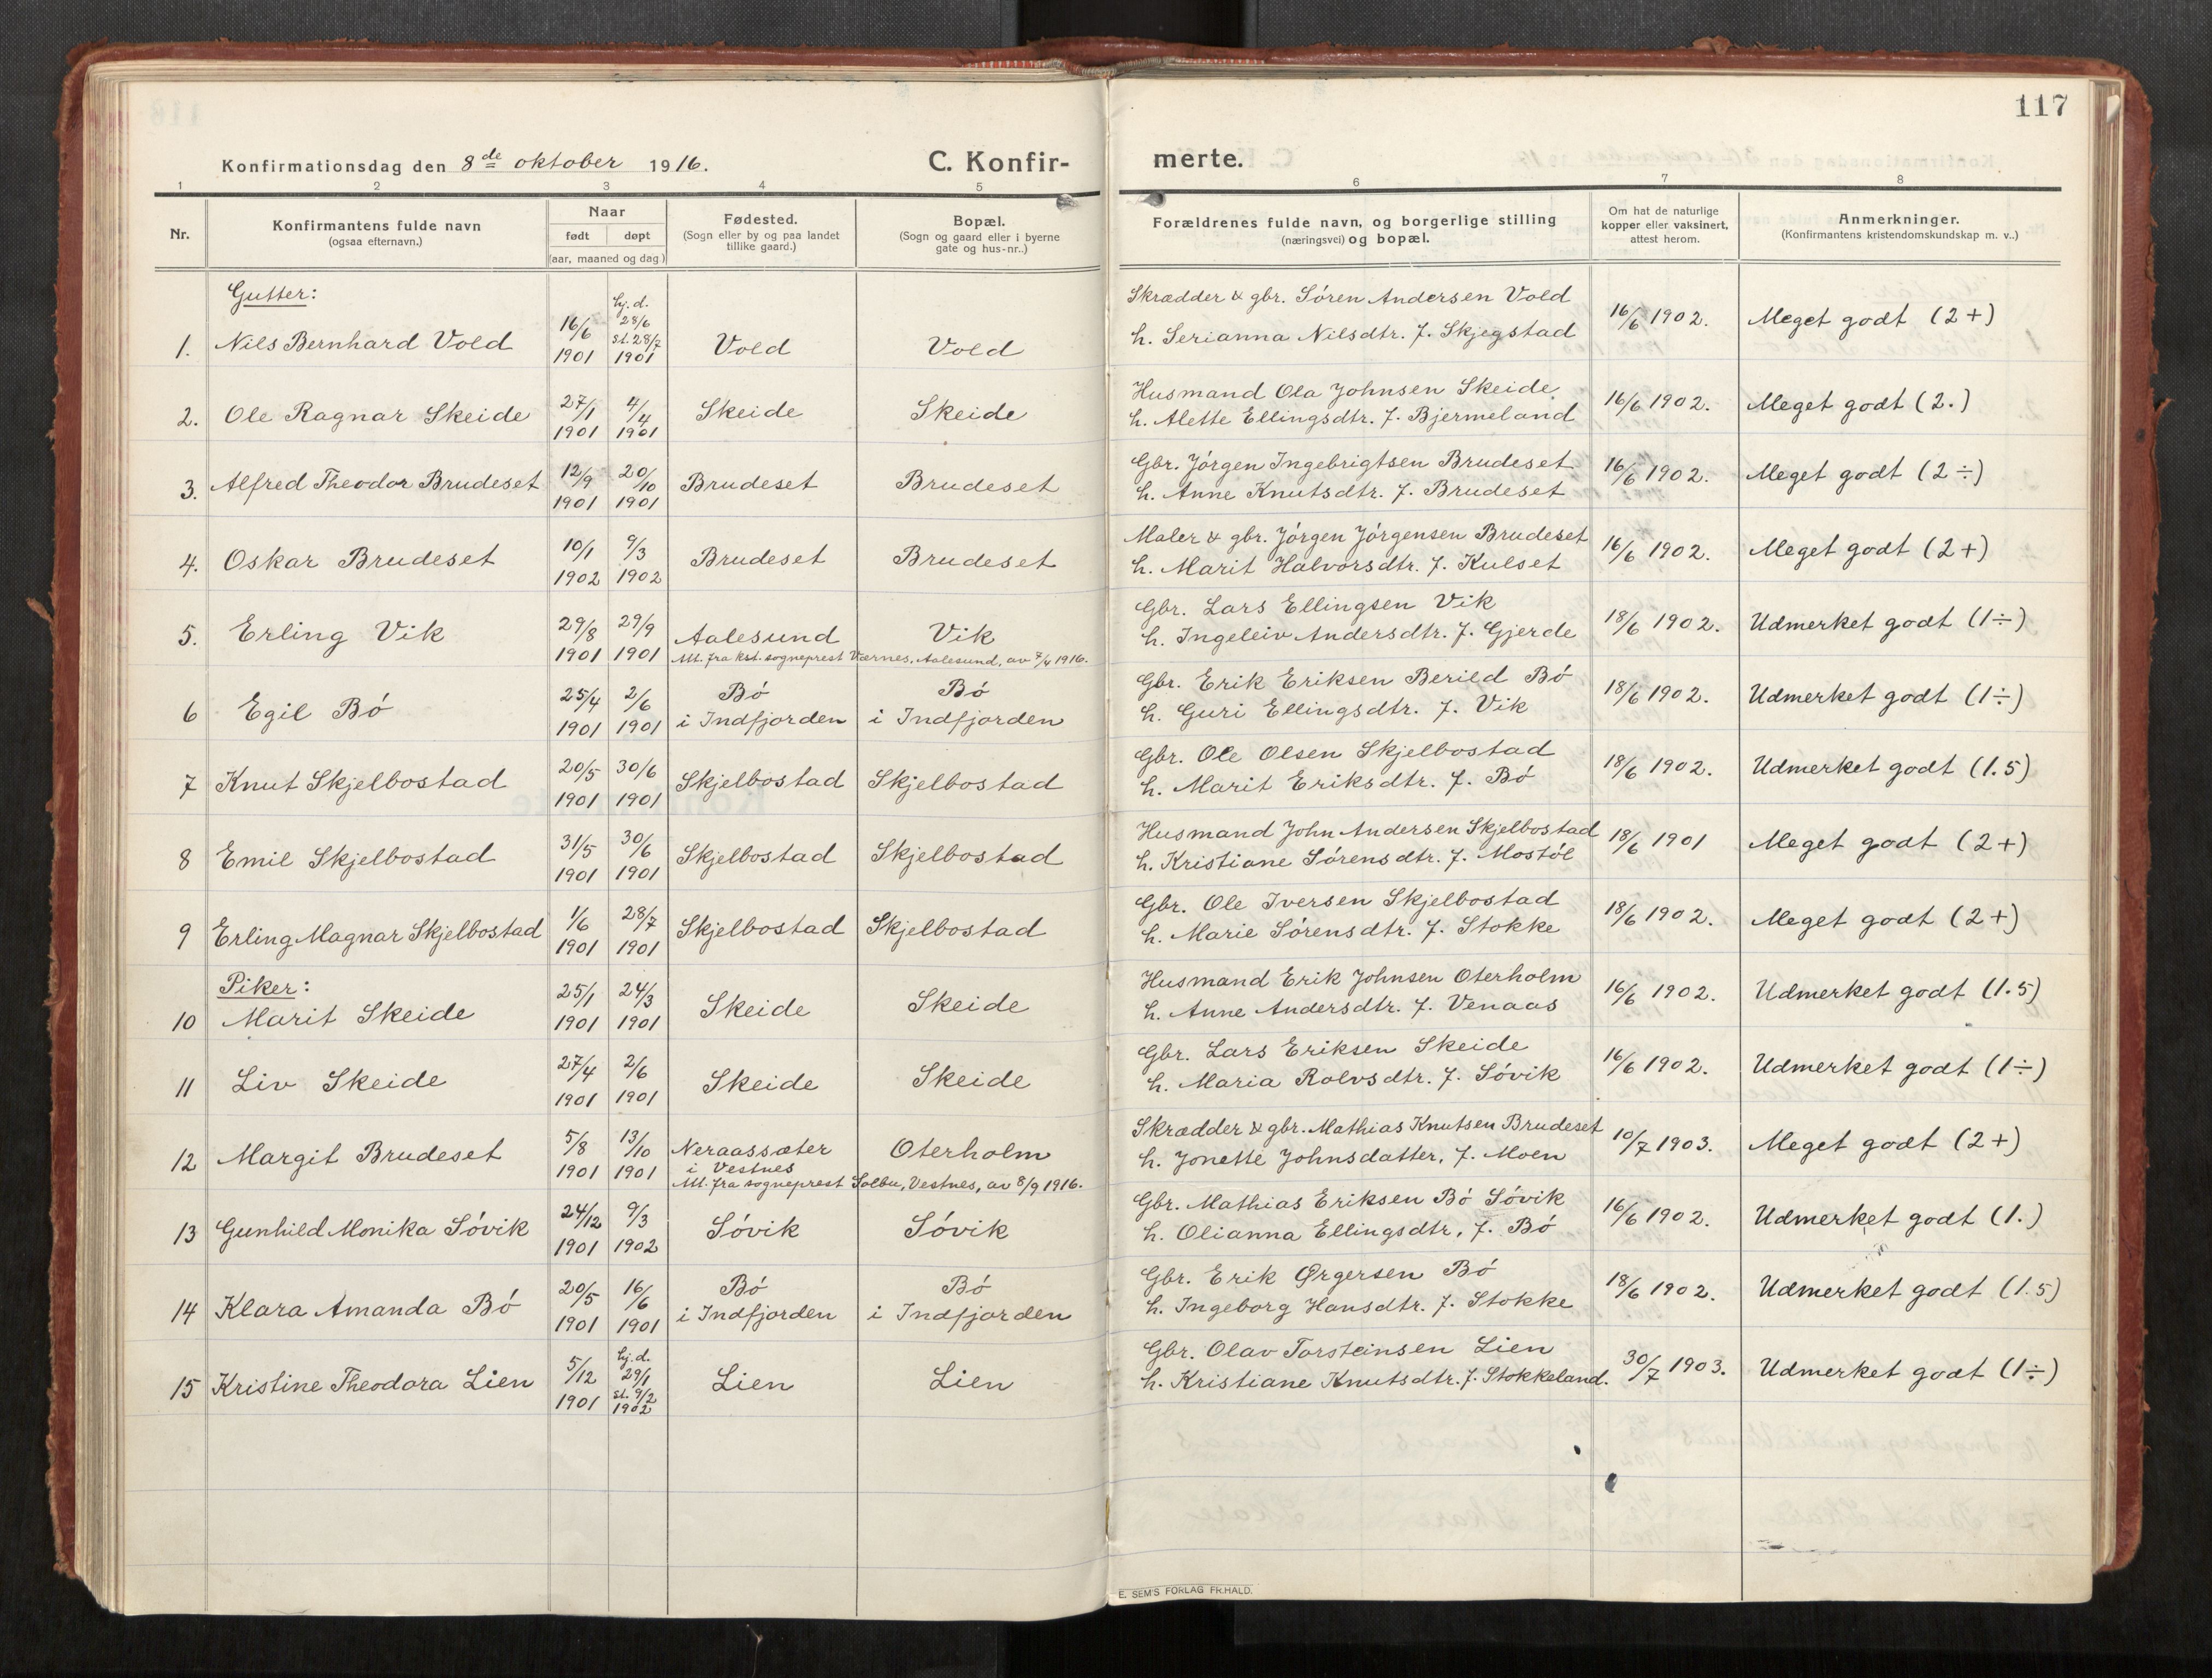 117
Konfirmationsdag den 8de oktober 1916.
C. Konfirmerte.
1 2 3 4 5 6 7 8
Nr.
Konfirmantens fulde navn
(ogsaa efternavn.)
Naar
født døpt
(aar, maaned og dag)
Fødested.
(Sogn eller by og paa landet
tillike gaard.)
Bopæl.
(Sogn og gaard eller i byerne
gate og hus-nr..)
Forældrenes fulde navn, og borgerlige stilling
(næringsvei) og bopæl.
Om hat de naturlige
kopper eller vaksinert,
attest herom.
Anmerkninger.
(Konfirmantens kristendomskundskap m. v..)
Gutter:
1. Nils Bernhard Vold 16/6 1901 hj. d. 28/6 st. 28/7 1901 Vold Vold
Skrædder & gbr. Søren Andersen Vold
h. Serianna Nilsdtr. f. Skjegstad
16/6 1902. Meget godt (2+)
2. Ole Ragnar Skeide 27/1 1901 4/4 1901 Skeide Skeide
Husmand Ola Johnsen Skeide
h. Alette Ellingsdtr. f. Bjermeland
16/6 1902. Meget godt (2.)
3. Alfred Theodor Brudeset 12/9 1901 20/10 1901 Brudeset Brudeset
Gbr. Jørgen Ingebrigtsen Brudeset
h. Anne Knutsdtr. f. Brudeset
16/6 1902. Meget godt (2÷)
4. Oskar Brudeset 10/1 1902 9/3 1902 Brudeset Brudeset
Maler & gbr. Jørgen Jørgensen Brudeset
h. Marit Halvorsdtr. f. Kulset
16/6 1902. Meget godt (2+)
5. Erling Vik 29/8 1901 29/9 1901 Aalesund Vik
Utt. fra kst. sogneprest Værnes, Aalesund, av 7/4 1916.
Gbr. Lars Ellingsen Vik
h. Ingeleiv Andersdtr. f. Gjerde
18/6 1902. Udmerket godt (1÷)
6 Egil Bó 25/4 1901 2/6 1901 Bó i Indfjorden Bó i Indfjorden
Gbr. Erik Eriksen Berild Bó
h. Guri Ellingsdtr. f. Vik
18/6 1902. Udmerket godt (1÷)
7 Knut Skjelbostad 20/5 1901 30/6 1901 Skjelbostad Skjelbostad
Gbr. Ole Olsen Skjelbostad
h. Marit Eriksdtr. f. Bó
18/6 1902. Udmerket godt (1.5)
8 Emil Skjelbostad 31/5 1901 30/6 1901 Skjelbostad Skjelbostad
Husmand John Andersen Skjelbostad
h. Kristiane Sórensdtr. f. Mostól
18/6 1901 Meget godt (2+)
9 Erling Magnar Skjelbostad 1/6 1901 28/7 1901 Skjelbostad Skjelbostad
Gbr. Ole Iversen Skjelbostad
h. Marie Sørensdtr. f. Stokke
18/6 1902. Meget godt (2+)
Piker:
10 Marit Skeide 25/1 1901 24/3 1901 Skeide Skeide
Husmand Erik Johnsen Oterholm
h. Anne Andersdtr. f. Venaas
16/6 1902. Udmerket godt (1.5)
11 Liv Skeide 27/4 1901 2/6 1901 Skeide Skeide
Gbr. Lars Eriksen Skeide
h. Maria Rolvsdtr. f. Sóvik
16/6 1902. Udmerket godt (1÷)
12 Margit Brudeset 5/8 1901 13/10 1901 Neraassæter i Vestnes Oterholm
Utt. fra sogneprest Solbu, Vestnes, av 8/9 1916.
Skrædder & gbr. Mathias Knutsen Brudeset
h. Jonette Johnsdatter, f. Moen
10/7 1903. Meget godt (2+)
13 Gunhild Monika Sóvik 24/12 1901 9/3 1902 Sóvik Sóvik
Gbr. Mathias Eriksen Bó Sóvik
h. Olianna Ellingsdtr, f. Bó
16/6 1902. Udmerket godt (1.)
14 Klara Amanda Bó 20/5 1901 16/6 1901 Bó i Indfjorden Bó i Indfjorden
Gbr. Erik Ørgersen Bó
h. Ingeborg Hansdtr. f. Stokke
18/6 1902. Udmerket godt (1.5)
15 Kristine Theodora Lien 5/12 1901 hj. d. 29/1 st. 9/2 1902 Lien Lien
Gbr. Olav Torsteinsen Lien
h. Kristiane Knutsdtr. f. Stokkeland.
30/7 1903. Udmerket godt (1÷)
E. SEM'S FORLAG FR.HALD.